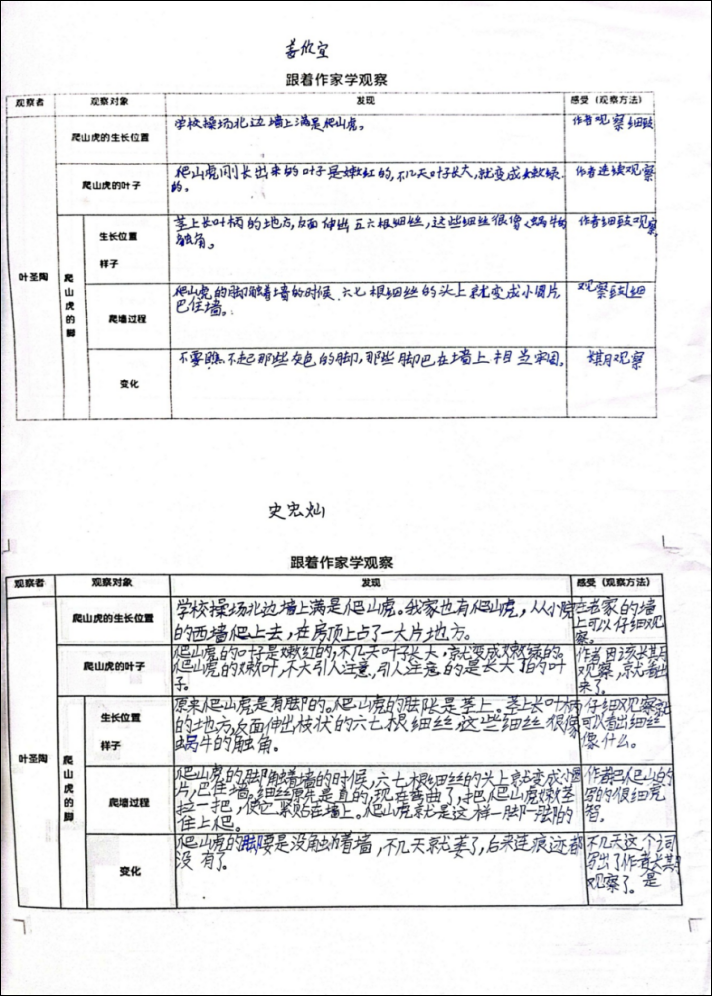 姜欣宜
跟着作家学观察
观察者 观察对象 发现 感受（观察方法）
爬山虎的生长位置 学校操场北边墙上满是爬山虎。 作者观察细致
爬山虎的叶子 爬山虎刚长出来的叶子是嫩红的,不几天叶子长大,就变成嫩绿 作者连续观察
的。
叶圣陶 爬山虎的脚
生长位置 样子 茎上长叶柄的地方,反面伸出五六根细丝,这些细丝很像蜗牛的 作者细致观察
触角。
爬墙过程 爬山虎的脚触着墙的时候,六七根细丝的头上就变成小圆片, 观察
巴住墙。
变化 不要瞧不起那些灰色的脚,那些脚巴在墙上相当牢固, 观察
史宏灿
跟着作家学观察
观察者 观察对象 发现 感受（观察方法）
爬山虎的生长位置 学校操场北边墙上满是爬山虎。我家也有爬山虎,从小院 在老家的墙
的西墙爬上去,在房顶上占了一大片地方。 上可以仔细观
察。
爬山虎的叶子 爬山虎的叶子是嫩红的,不几天叶子长大,就变成嫩绿的。 作者因该长期
爬山虎的嫩叶,不大引人注意,引人注意的是长大了的叶 观察,就看出
子。 来了。
叶圣陶 爬山虎的脚
生长位置 样子 原来爬山虎是有脚的。爬山虎的脚长是茎上。茎上长叶柄 仔细观察
的地方,反面伸出枝状的六七根细丝,这些细丝很像 可以看出细丝
蜗牛的触角。 像什么。
爬墙过程 爬山虎的脚触着墙的时候,六七根细丝的头上就变成小圆
片,巴住墙。细丝原先是直的,现在弯曲了,把爬山虎嫩茎 写的很细
拉一把,使它紧贴在墙上。爬山虎就是这样一脚一脚的
往上爬。
变化 爬山虎的脚要是没触着墙,不几天就萎了,后来连痕迹都 不几天这个词
没有了。 写出了作者长期
观察了。是